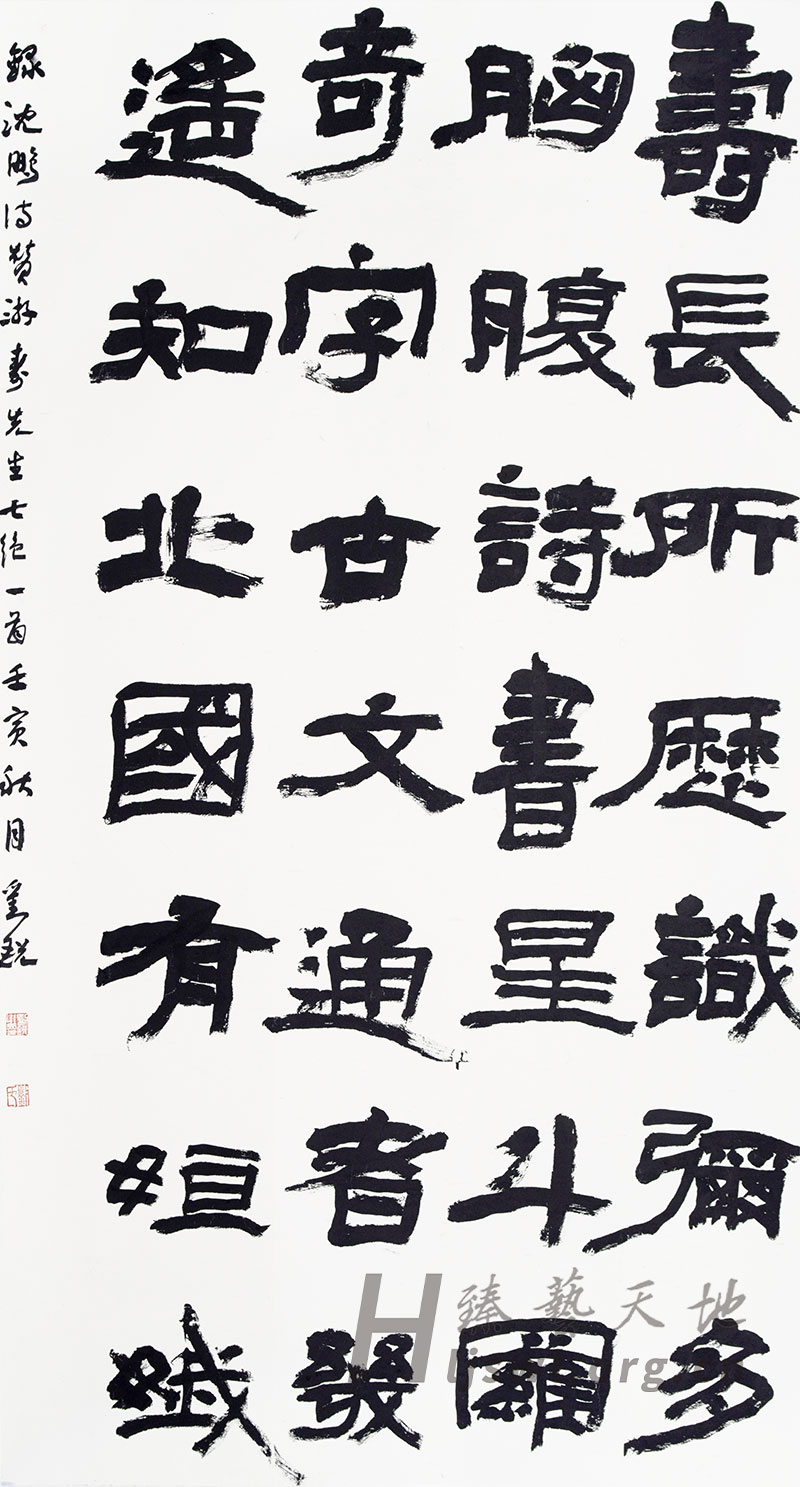 壽長所歷識彌多
胸腹詩書星斗羅
奇字古文通者幾
遙知北國有姮娥
錄沈鵬詩贊游壽先生七絕一首壬寅秋月
臻藝天地